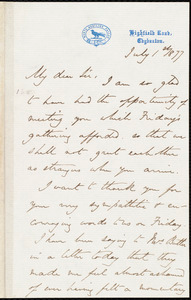 Highfield Road,
Edgbaston.
July 1st 1877
My dear Sir. I am so glad
to have had the opportunity of
meeting you which Friday's
gathering afforded so that we
shall not greet each other
as strangers when you arrive.
I want to thank you
for your very sympathetic & en-
couraging words to us on Friday
I have been saying to
in a letter today that they
made me feel almost ashamed
of ever having felt a momentary